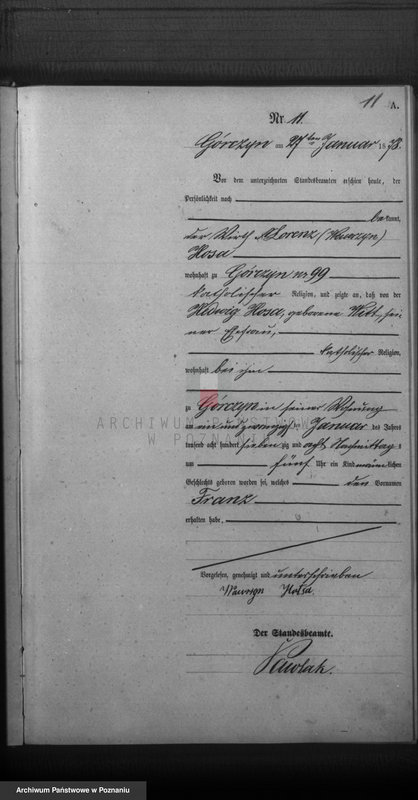 11 A.
Nr. 11.
Górczyn am 27ten Januar 1878.
Vor dem unterzeichneten Standesbeamten erschien heute, der
Persönlichkeit nach
bekannt,
der Wirth Lorenz (Wawrzyn)
Hosa
wohnhaft zu Górczyn nr 99
katholischer Religion, und zeigte an, daß von der
Hedwig Hosa, geborene Witt, sei
ner Ehefrau,
katholischer Religion,
wohnhaft bei ihm
zu Górczyn in seiner Wohnung
am ein und zwanzigsten Januar des Jahres
tausend acht hundert siebenzig und acht Nachmittags
um fünf Uhr ein Kind männlichen
Geschlechts geboren worden sei, welches den Vornamen
Franz
erhalten habe.
Vorgelesen, genehmigt und unterschrieben
Wawrzyn Hosa.
Der Standesbeamte.
Pawlak.
ARCHIWUM PAŃSTWOWE
W POZNANIU
Archiwum Państwowe w Poznaniu